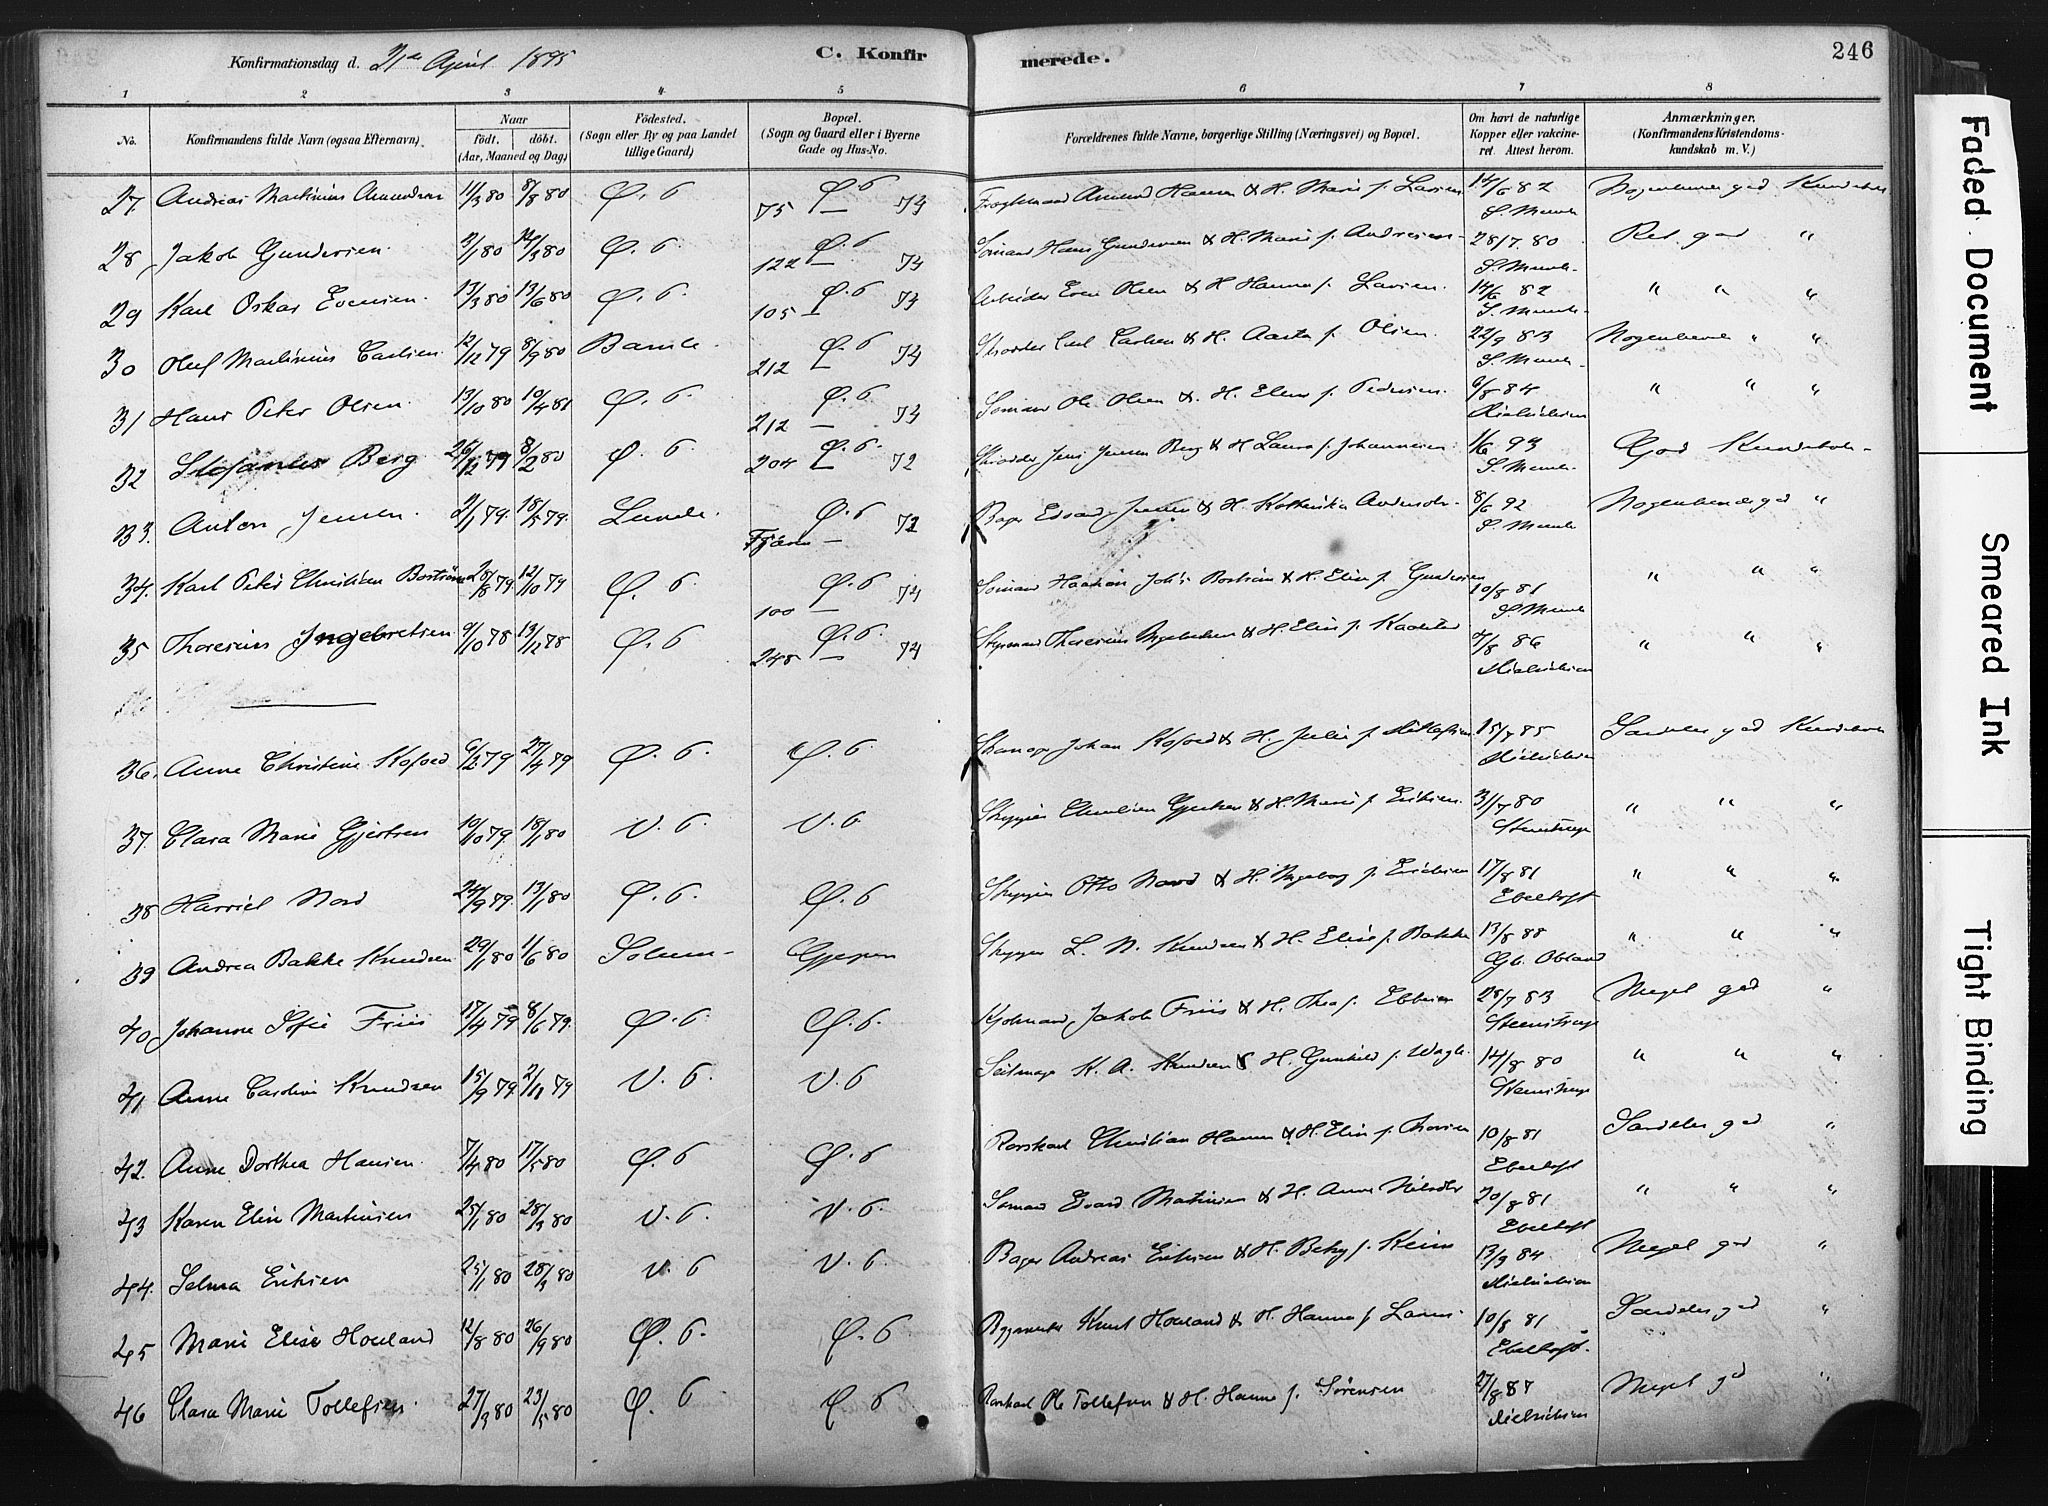 Konfirmationsdag d. 21de April 1895
C. Konfir
merede.
246
1 2 3 4 5 6 7 8
No.
Konfirmandens fulde Navn (ogsaa Efternavn).
Naar
født. døbt.
(Aar, Maaned og Dag)
Fødested.
(Sogn eller By og paa Landet
tillige Gaard)
Bopæl.
(Sogn og Gaard eller i Byerne
Gade og Hus-No.
Forældrenes fulde Navne, borgerlige Stilling (Næringsvei) og Bopæl.
Om havt de naturlige
Kopper eller vakcine-
ret. Attest herom.
Anmærkninger,
(Konfirmandens Kristendoms-
kundskab m. V.)
27. Andreas Martinius Amundsen 11/3 80 8/8 80 Ø. 6 Ø. 6 14/6 82 Nogenlunde god
75 — 73 S. Munch
28 Jakob Gundersen 2/1 80 14/3 80 Ø. 6 Ø. 6 Sømand Hans Gundersen & H. Maren f. Andresen 28/7. 80 Ret god "
122 — 73 S. Munch
29 Karl Oskar Evensen 13/3 80 13/6 80 Ø. 6. Ø. 6 Arbeider Even Olsen & H. Hanna f. Larsen. 14/6 82 " " "
105 — 73 S. Munch
30 Oluf Martinius Carlsen 12/12 79 8/9 80 Bamble Ø. 6 & H. Aasta f. Olsen. 22/9 83 Nogenlunde " "
212 — 73 S. Munch
31 Hans Peter Olsen 13/10 80 10/4 81 Ø. 6 Ø. 6 Sømand Ole Olsen & H. Elen f. Pedersen. 6/8 84 " " "
212 — 73 Nielsen
32 Stefanus Berg 26/12 79 8/2 80 Ø. 6 Ø. 6. Jens Jensen Berg & H Laura f. Johannesen 1/6 93 God
204 — 72 S. Munch
33. Anton Jensen 2/1 79. 18/5 79. Lunde. Ø. 6 Bager Edvard Jensen & H. 8/6 92 Nogenlunde god "
— 72 S. Munch
34. Karl Peter Christian Bostrøm 28/8 79. 12/10 79 Ø. 6 Ø. 6 Sømand & H. Elise f. Gundersen 10/8 81 " " "
100 — 74 S. Munch
35 Thoresius Ingebretsen 9/10 78 13/12 78 Ø. 6 Ø. 6. Styrmand Thoresius Ingebretsen & H. Elise f. 4/8 86 " " "
248 — 74
36. Anne Christine Kofoed 6/2 79 27/4 79 Ø. 6 Ø. 6 Johan Kofoed & H. Julie f. 15/7 85 Særdeles god
37. Clara Marie Gjertsen 10/10 79. 18/1 80 V. 6. V. 6 Skipper Christian Gjertsen & H. Maren f. Eriksen. 31/7 80 " " "
Steenstrup
38 Harriet Nord 24/9 79. 13/1 80 Ø. 6 Ø. 6 Skipper Otto Nord & H. Ingeborg f. Eriksen 17/8 81 " " "
Ebeltoft
39 Andrea Bakke Knudsen 29/1 80 1/6 80 Solum Skipper L. N. Knudsen & H. Elise f. Bakke 13/8 88 " " "
40 Johanne Sofie Friis 17/4 79 8/6 79. Ø. 6 Ø. 6. Jakob Friis & H. Thea f. Ebbesen 28/7 83 Meget god "
Steenstrup
41 Anne Caroline Knudsen 15/9 79. 2/11 79 V. 6. V. 6 Seilmager K. A. Knudsen & H. Gunhild f. 14/8 80 " " "
Steenstrup
42. Anne Dorthea Hansen. 7/4 80 17/5 80 Ø. 6 Ø. 6 Rorskarl Christian Hansen & H. Elise f. Thorsen 10/8 81 Særdeles god "
Ebeltoft
43 Karen Elise Martinsen 25/1 80 28/3 80 V. 6. V. 6. Sømand Edvard Martinsen & H. Anne 20/8 81 " " "
Ebeltoft
44. Selma Eriksen 25/1 80 28/3 80 V. 6 V. 6. Bager Andreas Eriksen & H. Betzy f. 13/9 84 Meget god "
45 Marie Elise Hovland 12/8 80 26/9 80 Ø. 6. Ø. 6 Knut Hovland & H. Hanna f. 10/8 81 Særdeles god "
Ebeltoft.
46 Clara Marie Tollefsen. 27/3 80 23/5 80 Ø. 6 Ø 6 Rorskarl Ole Tollefsen & H. Hanne f. Sørensen 27/8 87 Meget god "
Faded Document
Smeared Ink
Tight Binding